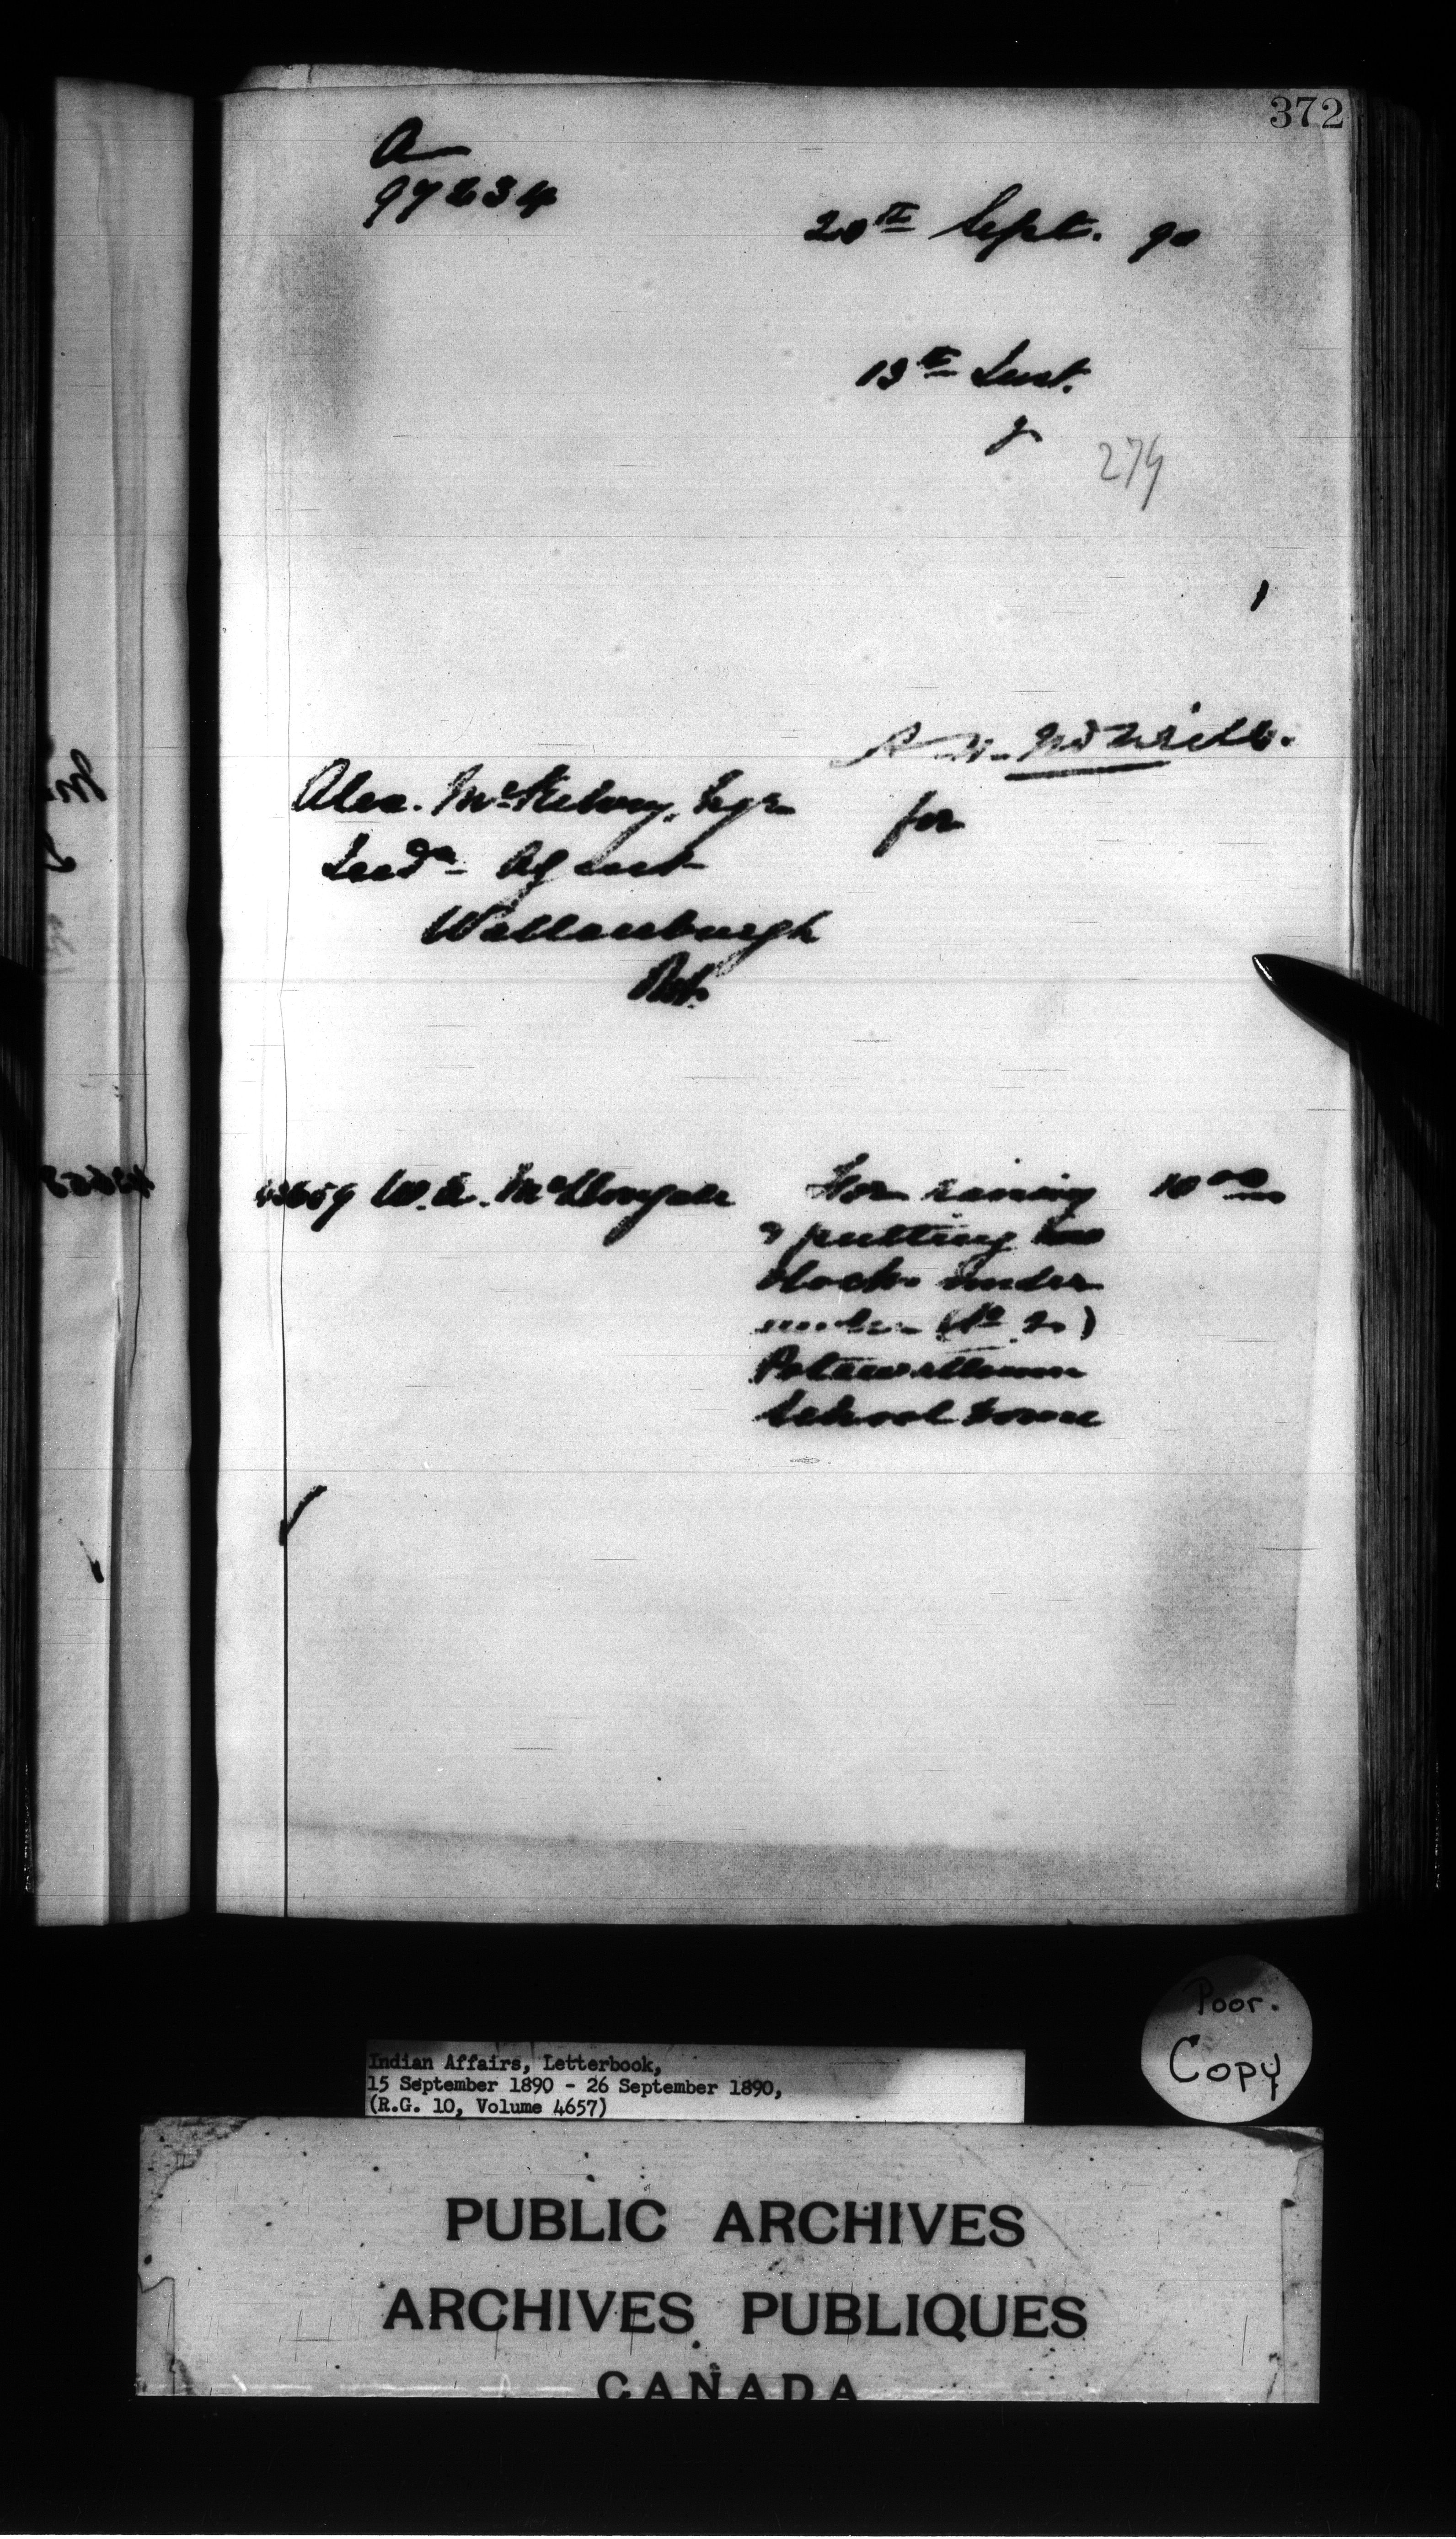 372
A
97234
20th Sept. 90
13th Inst.
279
Alex. McKelvey, Esqr
for
Indn Agent
Wallaceburgh
Ont.
W. A. McDougall For raising 10 00
& putting
blocks under
(No 2)
Pottawattamie
School house
Poor.
Copy
Indian Affairs, Letterbook,
15 September 1890 - 26 September 1890,
(R.G. 10, Volume 4657)
PUBLIC ARCHIVES
ARCHIVES PUBLIQUES
CANADA